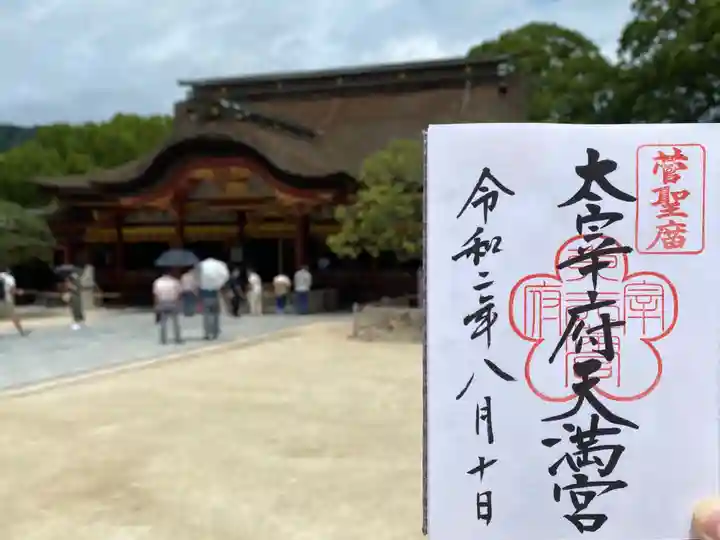 菅聖庿
太宰府天満宮
令和二年八月十日
宰
府